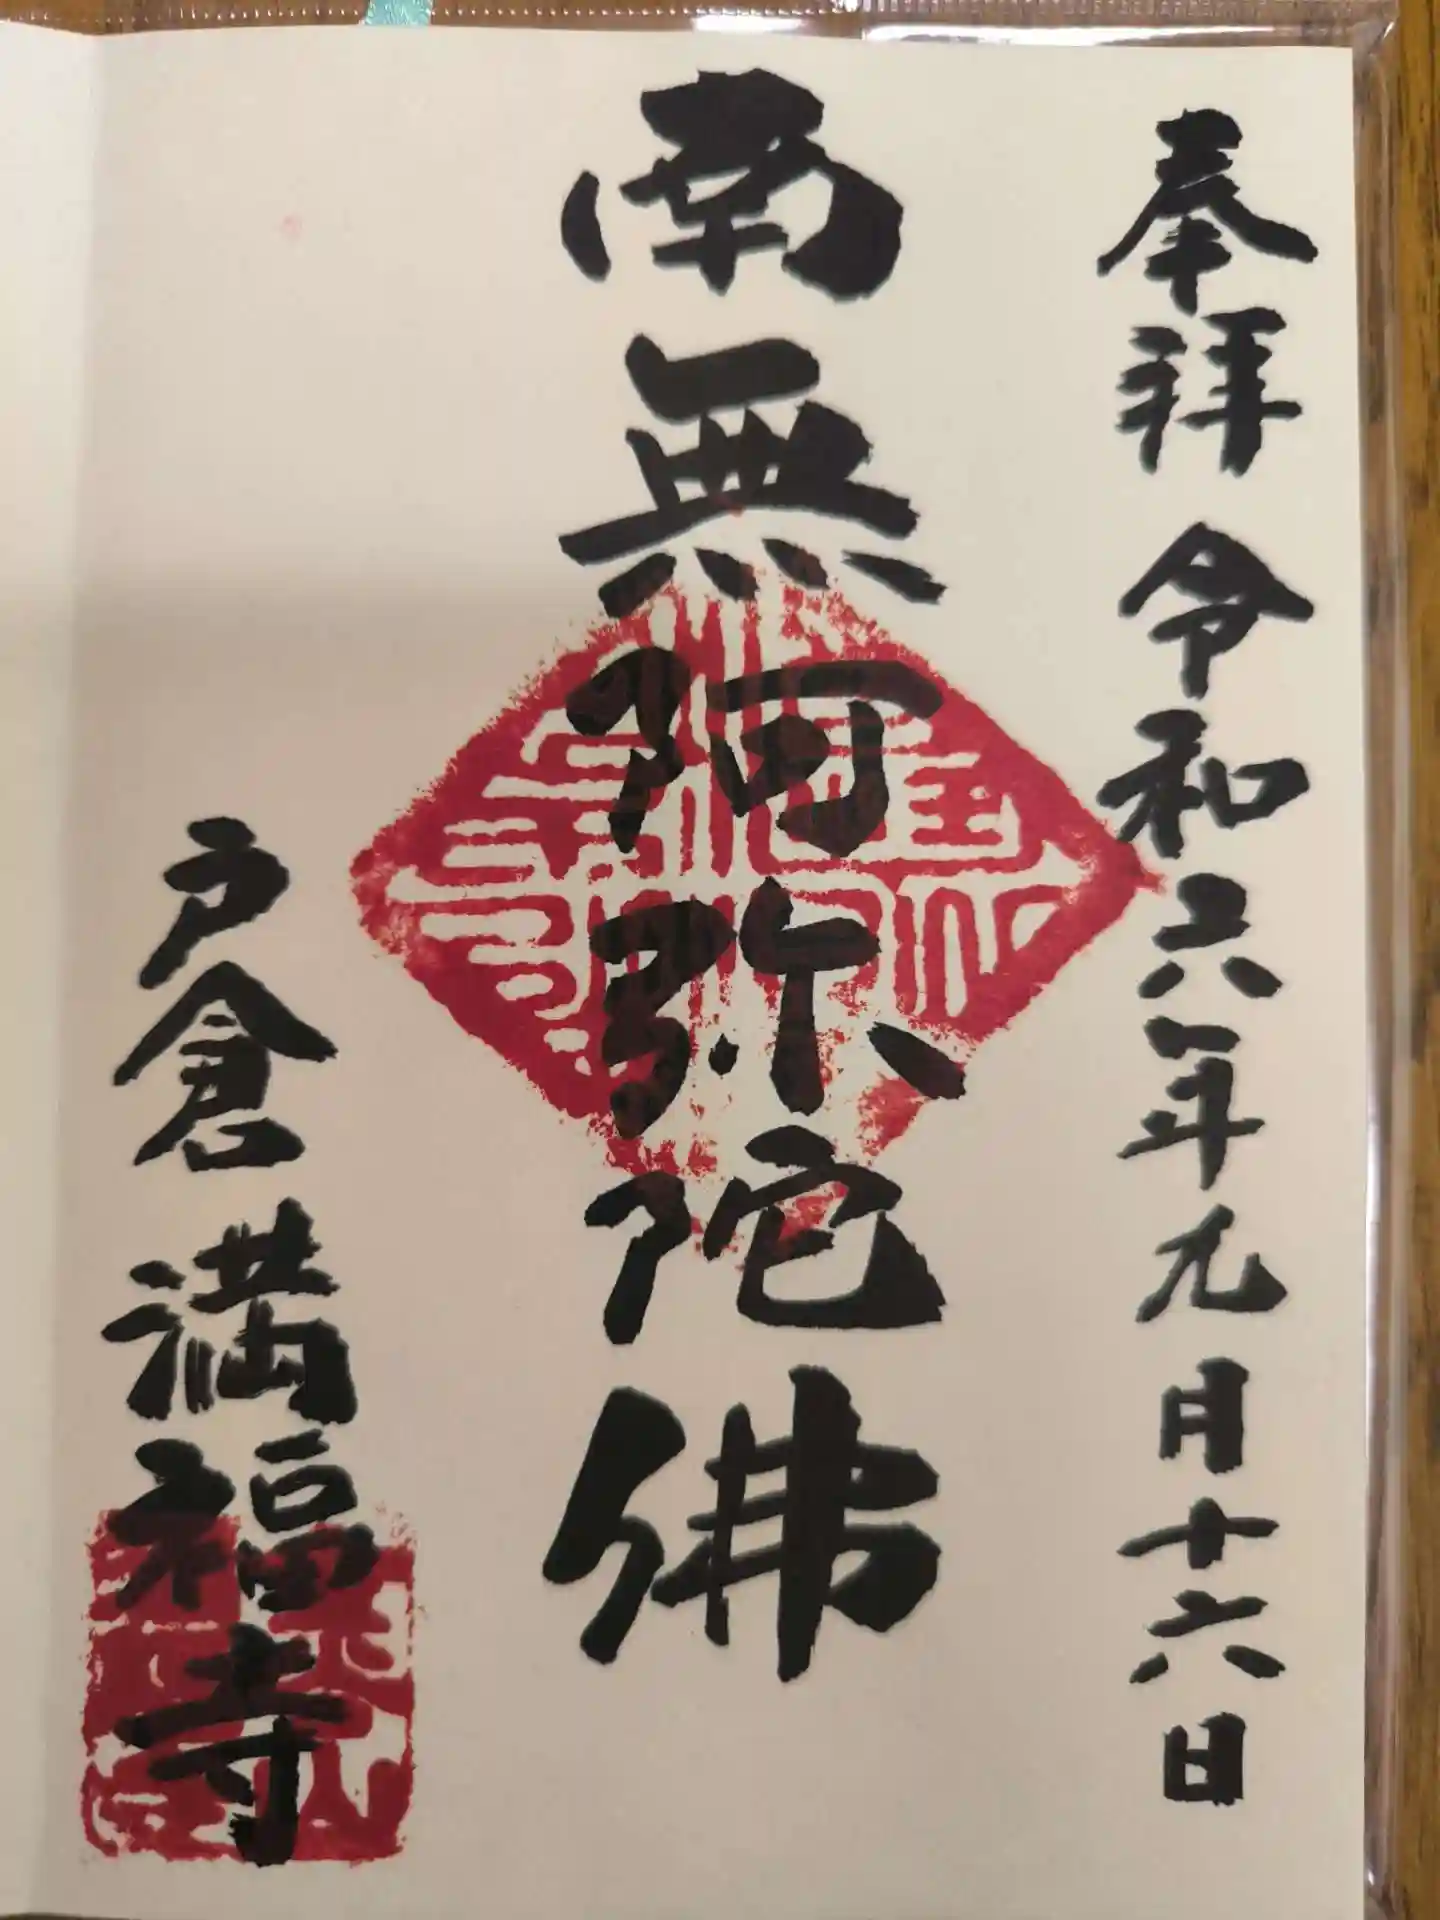 奉拝 令和六年九月十六日
南無阿弥陀佛
戸倉 満福寺